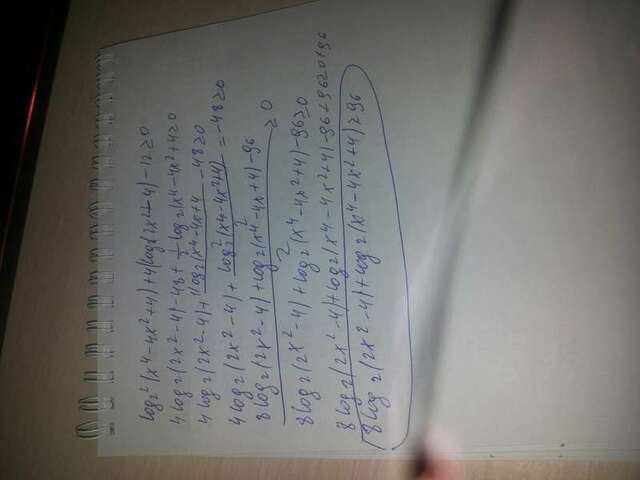 log₂²(x⁴-4x²+4)+4(log₈(2x²-4)-12≥0
4log₂(2x²-4)-48+½log₂(x⁴-4x²+4≥0
4log₂(2x²-4)+4log₂(x⁴-4x+4 -48≥0
4log₂(2x²-4)+log₂²(x⁴-4x²+4) = -48≥0
8log₂(2x²-4)+log₂²(x⁴-4x²+4)-96 ≥0
8log₂(2x²-4)+log₂²(x⁴-4x²+4)-96≥0
8log₂(2x²-4)+log₂(x⁴-4x²+4)-96+96≥0+96
8log₂(2x²-4)+log₂(x⁴-4x²+4)≥96